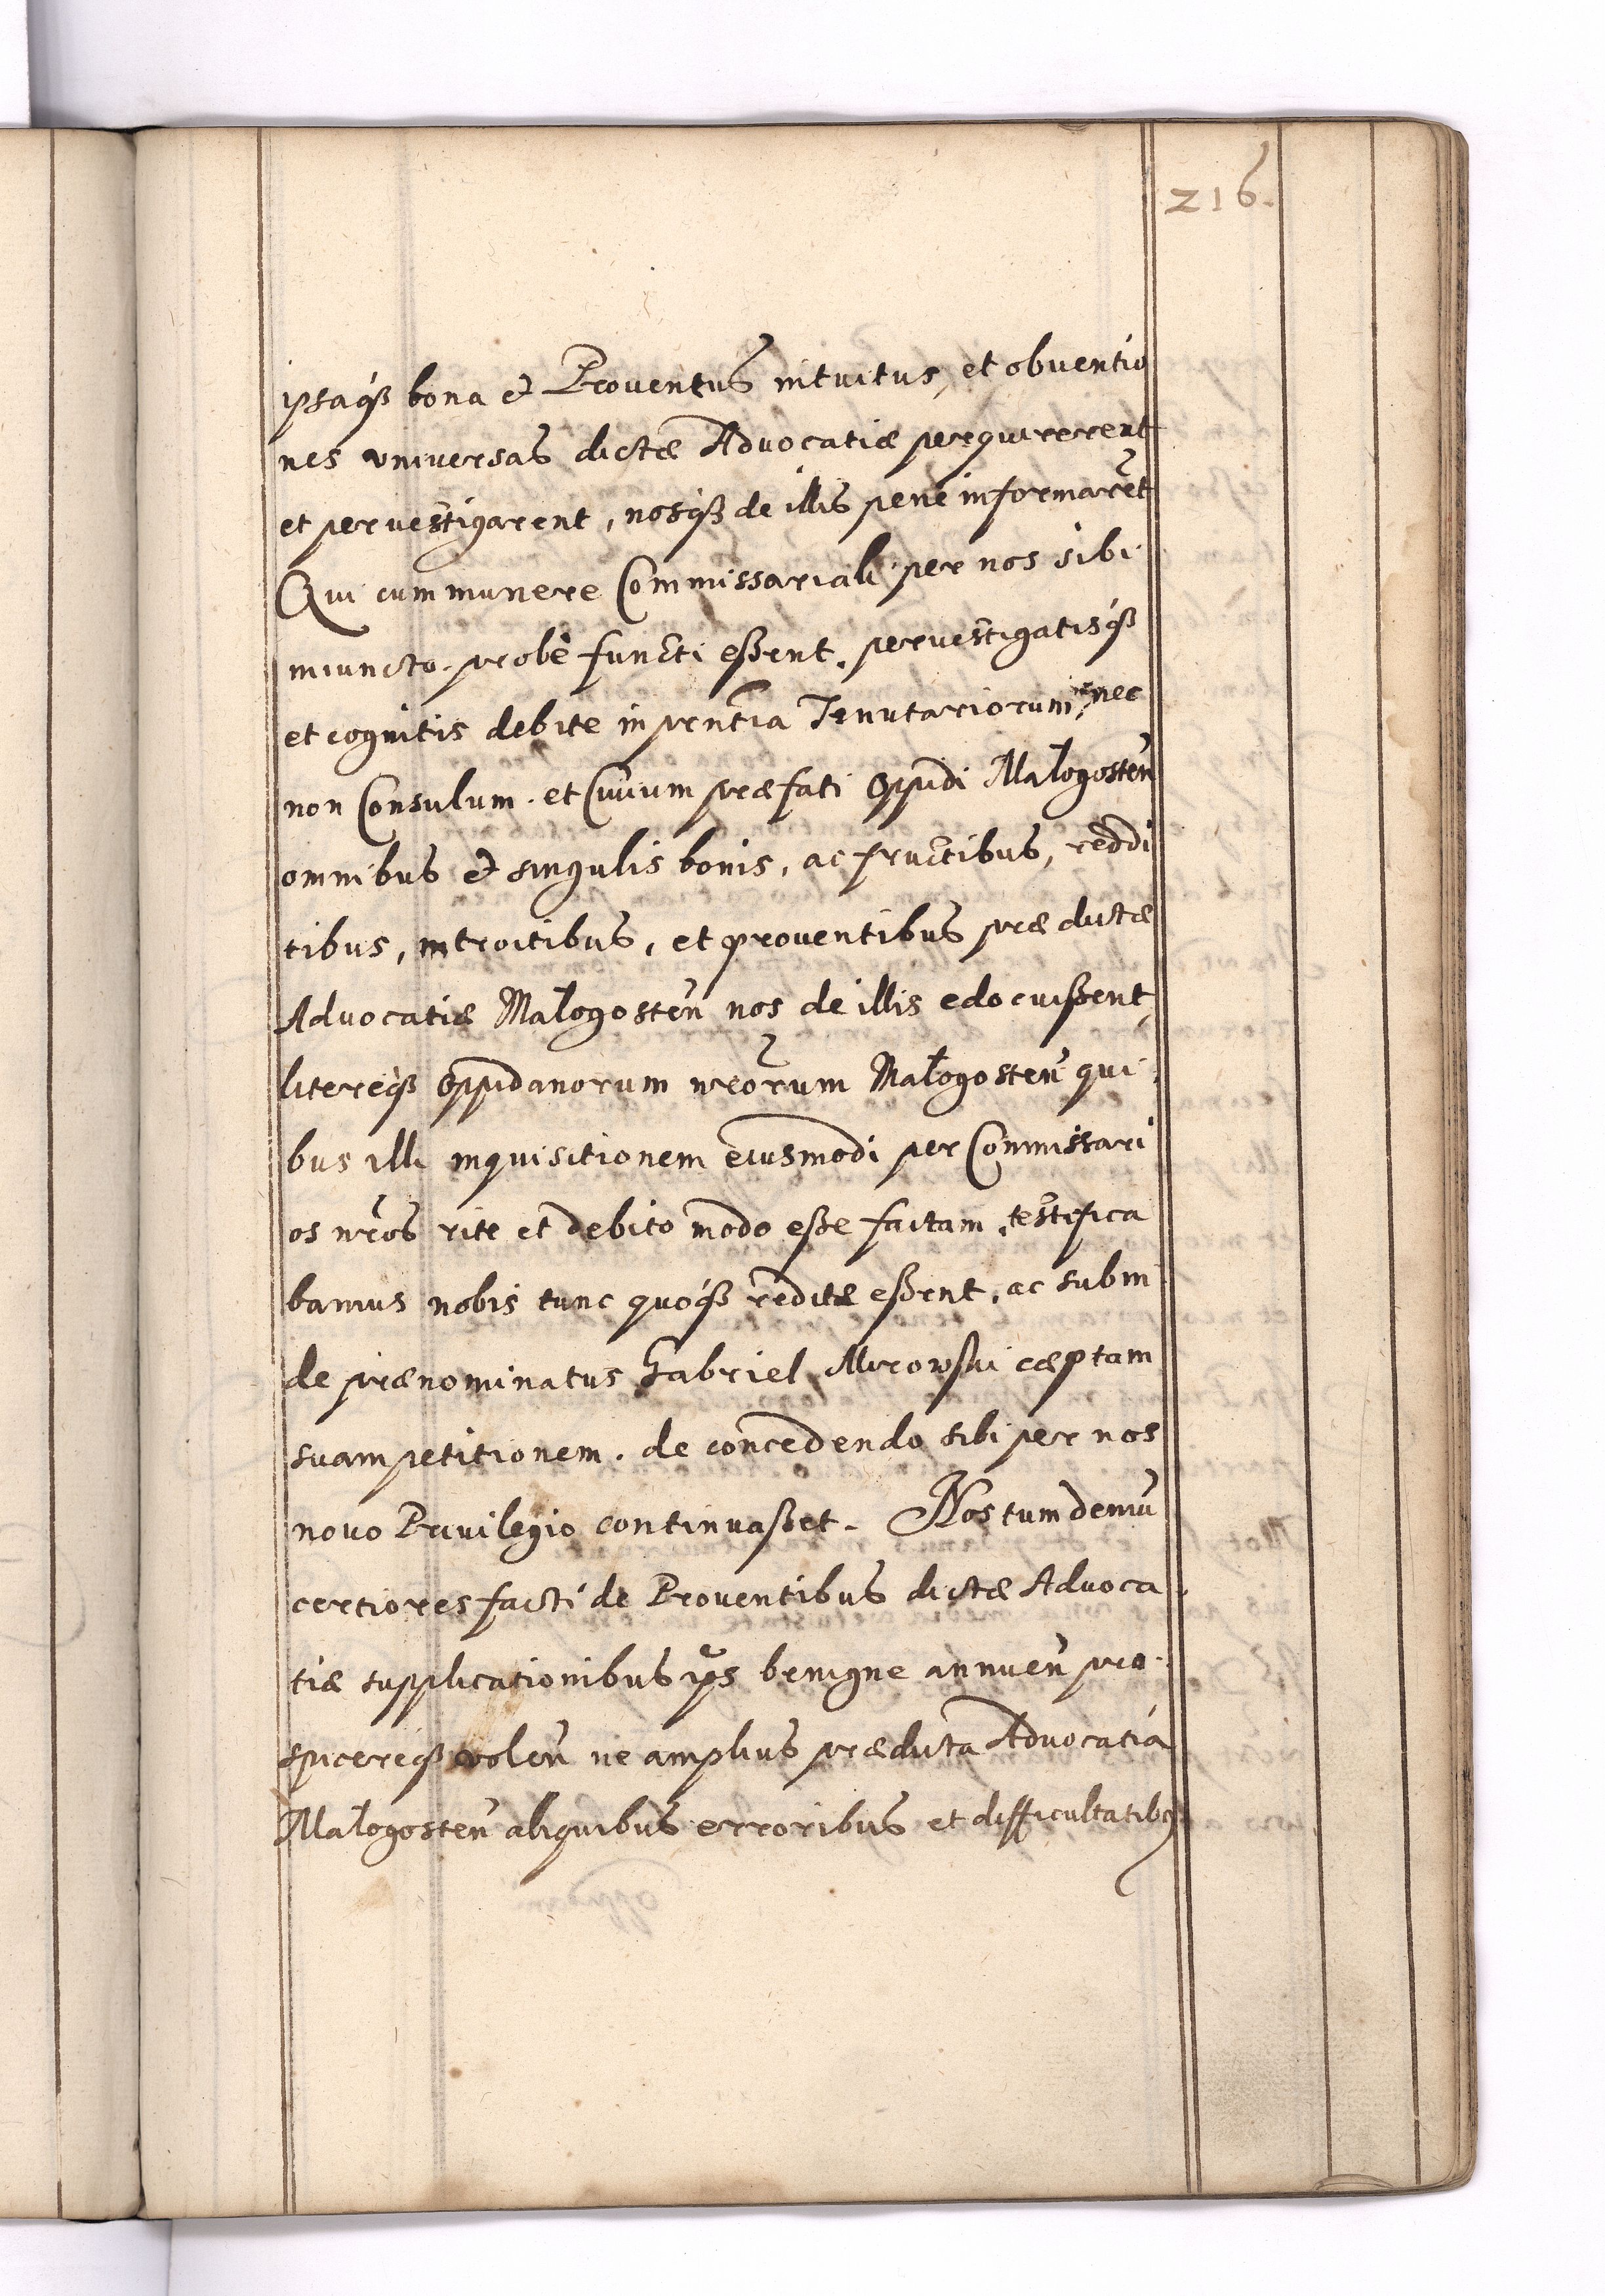 216.
ipsaq́ꝫ bona et Proventus intuitus, et obventio
nes vniversas dictæ Advocatiæ perquirerent
et pervestigarent, nosq́ꝫ de illis pene informarẽt
Qui cum munere Commissariali per nos sibi
iniuncto. probè functi eßent. pervestigatisq́ꝫ
et cognitis debite in pn̄tia Tenutariorum, nec
non Consulum. et Civium præfati Oppidi Małogosteń
omnibus et singulis bonis, ac fructibus, reddi
tibus, introitibus, et proventibus præ dictæ
Advocatiæ Małogosteń nos de illis edocuißent,
litereq́ꝫ Oppidanorum nr̃orum Małogosteń qui
bus illi inquisitionem eiusmodi per Commissari
os nr̃os rite et debito modo eße factam, testifica
bamus nobis tunc quoq́ꝫ redditæ eßent, ac subin
de prænominatus Gabriel Mrowski cæptam
suam petitionem. de concedendo sibi per nos
novo Privilegio continuaßet. Nos tum demū
certiores facti de Proventibus dictæ Advoca
tiæ supplicationibus ip̃s benigne annueń pro
spicereq́ꝫ voleń ne amplius prædicta Advocatia
Małogosteń aliquibus erroribus et difficultatibꝫ